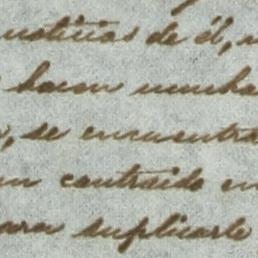 noticias de él,
hacen mucha
se encuentra
un contraido en
para suplicarle